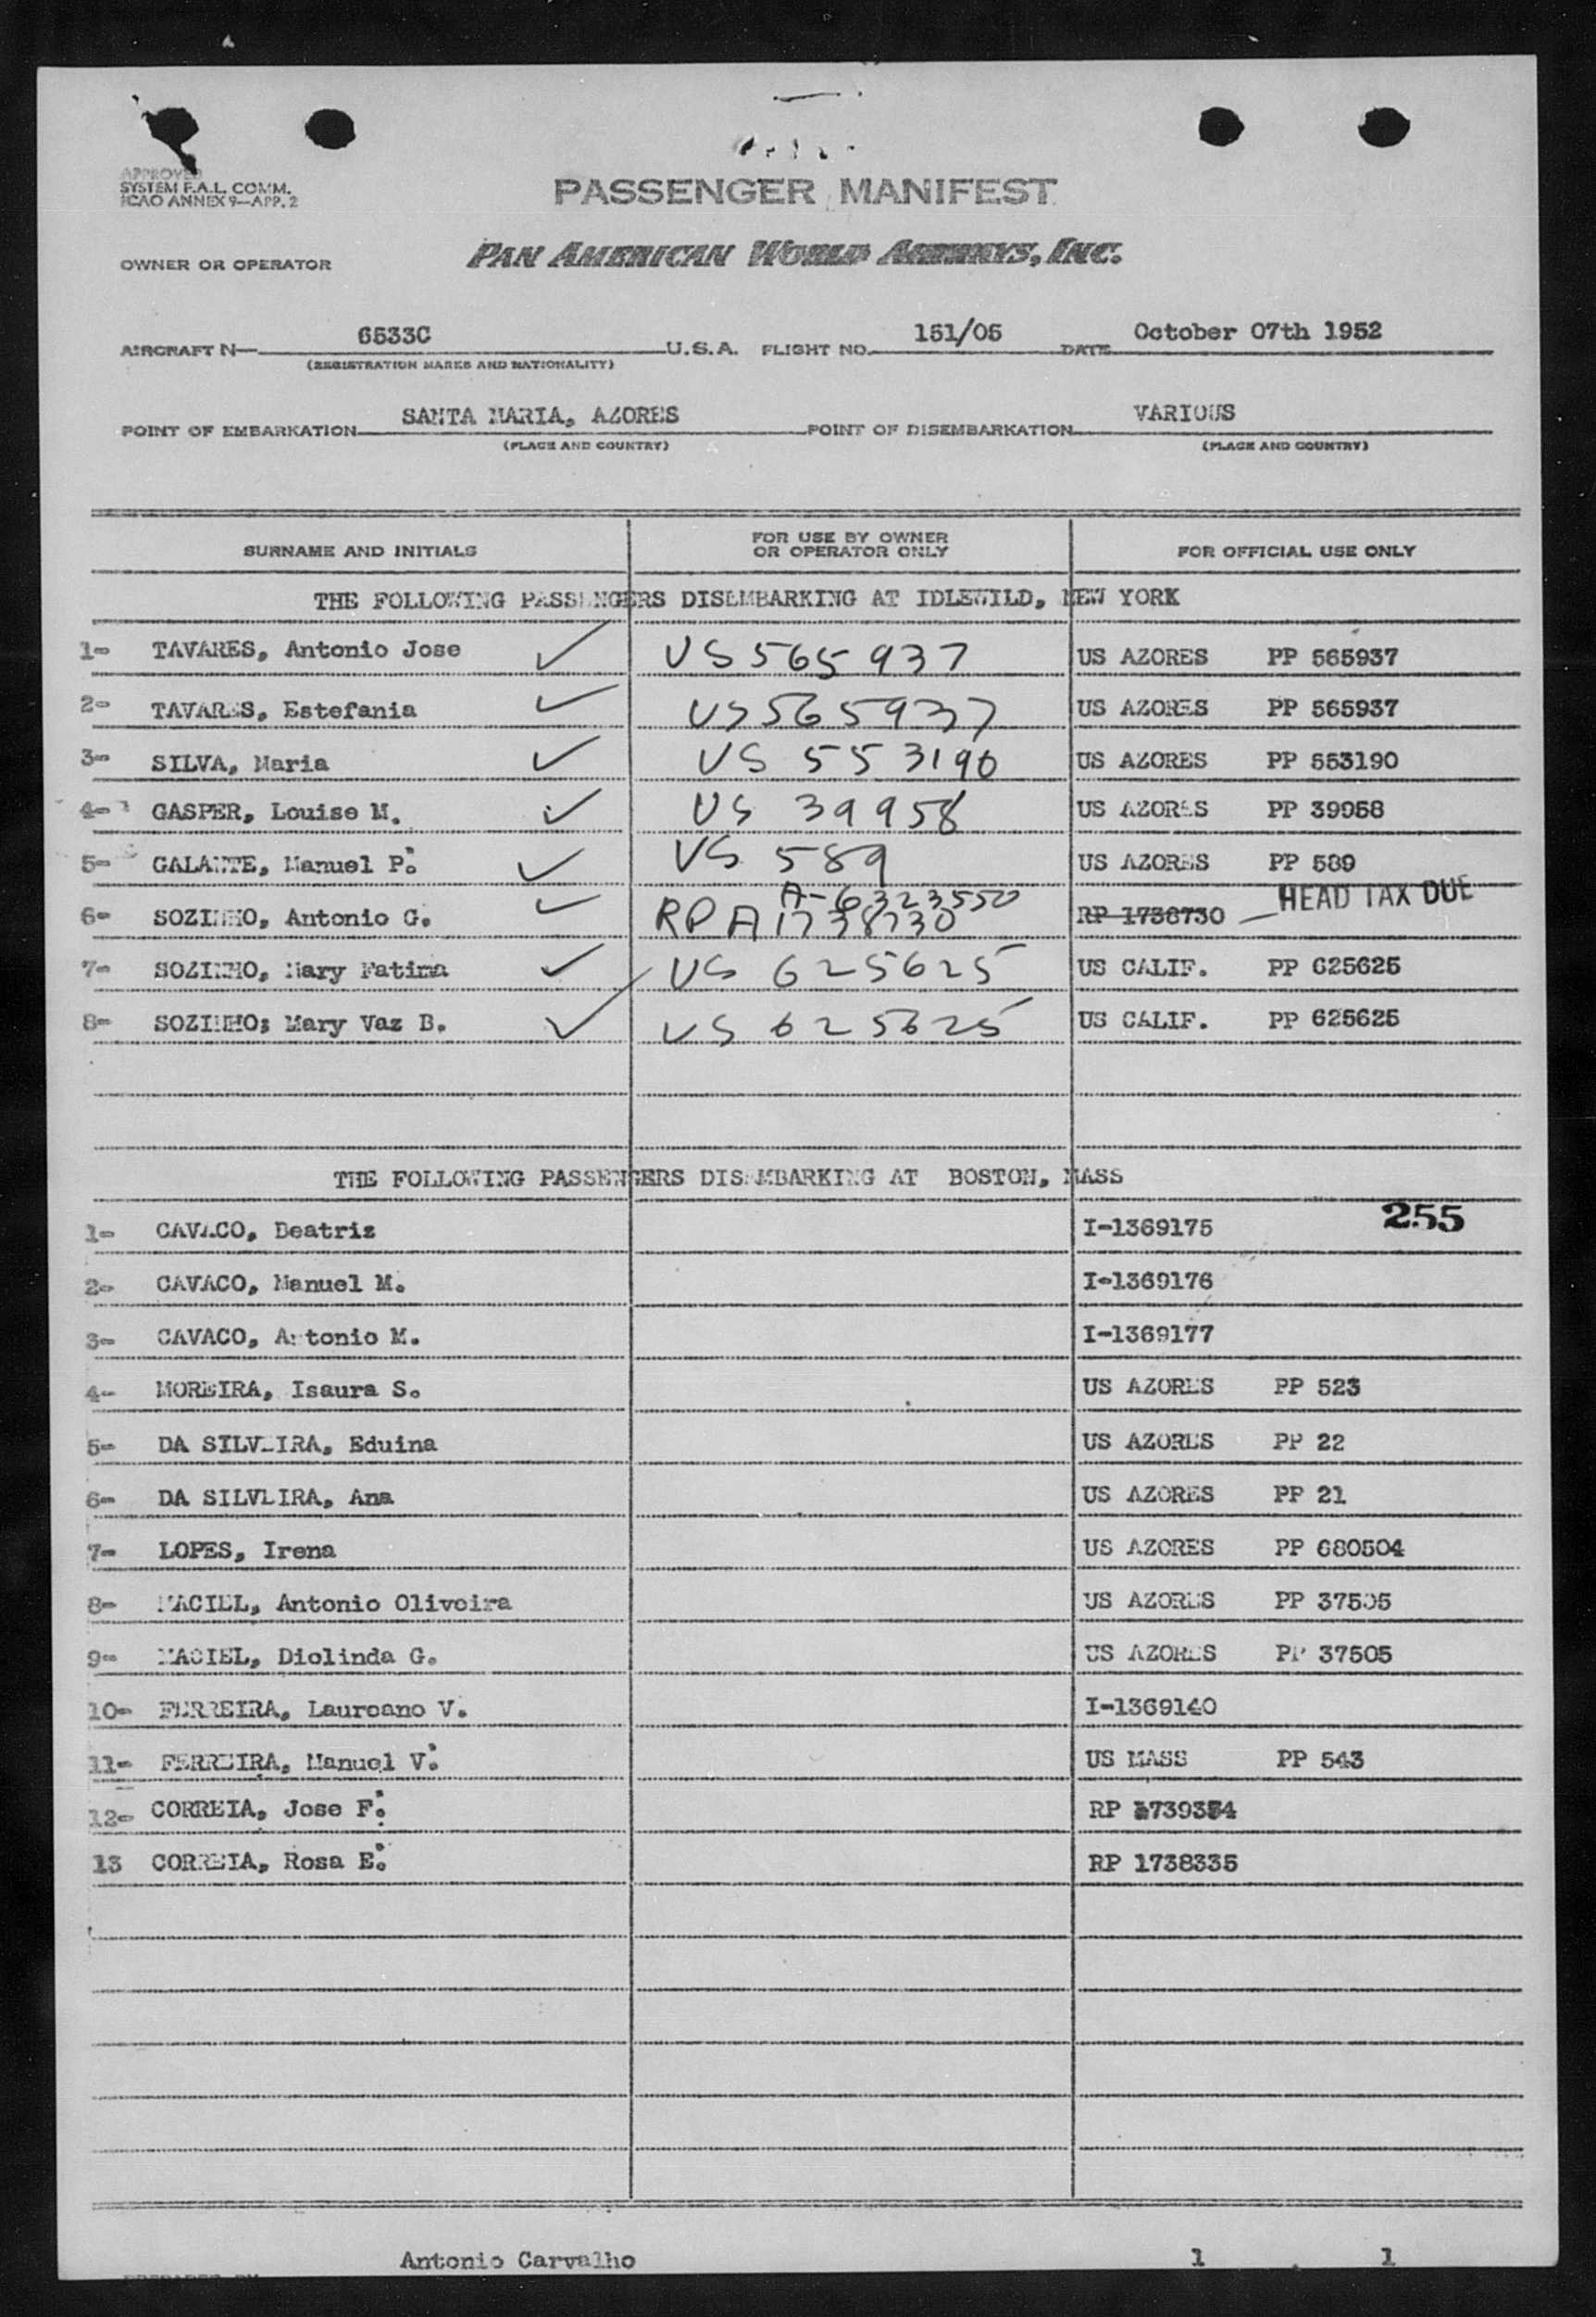 APPROVED
SYSTEM F.A.L. COMM.
ICAO ANNEX 9—APP. 2
PASSENGER MANIFEST
OWNER OR OPERATOR PAN AMERICAN WORLD AIRWAYS, INC.
AIRCRAFT N— 6533C U.S.A. FLIGHT NO. 151/05 DATE October 07th 1952
(REGISTRATION MARKS AND NATIONALITY)
POINT OF EMBARKATION SANTA MARIA, AZORES POINT OF DISEMBARKATION VARIOUS
(PLACE AND COUNTRY) (PLACE AND COUNTRY)
SURNAME AND INITIALS FOR USE BY OWNER OR OPERATOR ONLY FOR OFFICIAL USE ONLY
THE FOLLOWING PASSENGERS DISEMBARKING AT IDLEWILD, NEW YORK
1- TAVARES, Antonio Jose ✓ US 565937 US AZORES PP 565937
2- TAVARES, Estefania ✓ US 565937 US AZORES PP 565937
3- SILVA, Maria ✓ US 553190 US AZORES PP 553190
4- GASPER, Louise M. ✓ US 39958 US AZORES PP 39958
5- GALANTE, Manuel P. ✓ US 589 US AZORES PP 589
A-6323550 HEAD TAX DUE
6- SOZINHO, Antonio G. ✓ RP A1738730 RP 1738730 —
7- SOZINHO, Mary Fatima ✓ US 625625 US CALIF. PP 625625
8- SOZINHO; Mary Vaz B. ✓ US 625625 US CALIF. PP 625625
THE FOLLOWING PASSENGERS DISEMBARKING AT BOSTON, MASS
1- CAVACO, Beatriz I-1369175 255
2- CAVACO, Manuel M. I-1369176
3- CAVACO, Antonio M. I-1369177
4- MOREIRA, Isaura S. US AZORES PP 523
5- DA SILVEIRA, Eduina US AZORES PP 22
6- DA SILVEIRA, Ana US AZORES PP 21
7- LOPES, Irena US AZORES PP 680504
8- MACIEL, Antonio Oliveira US AZORES PP 37505
9- MACIEL, Diolinda G. US AZORES PP 37505
10- FERREIRA, Laureano V. I-1369140
11- FERREIRA, Manuel V. US MASS PP 543
12- CORREIA, Jose F. RP
13 CORREIA, Rosa E. RP 1738335
Antonio Carvalho 1 1